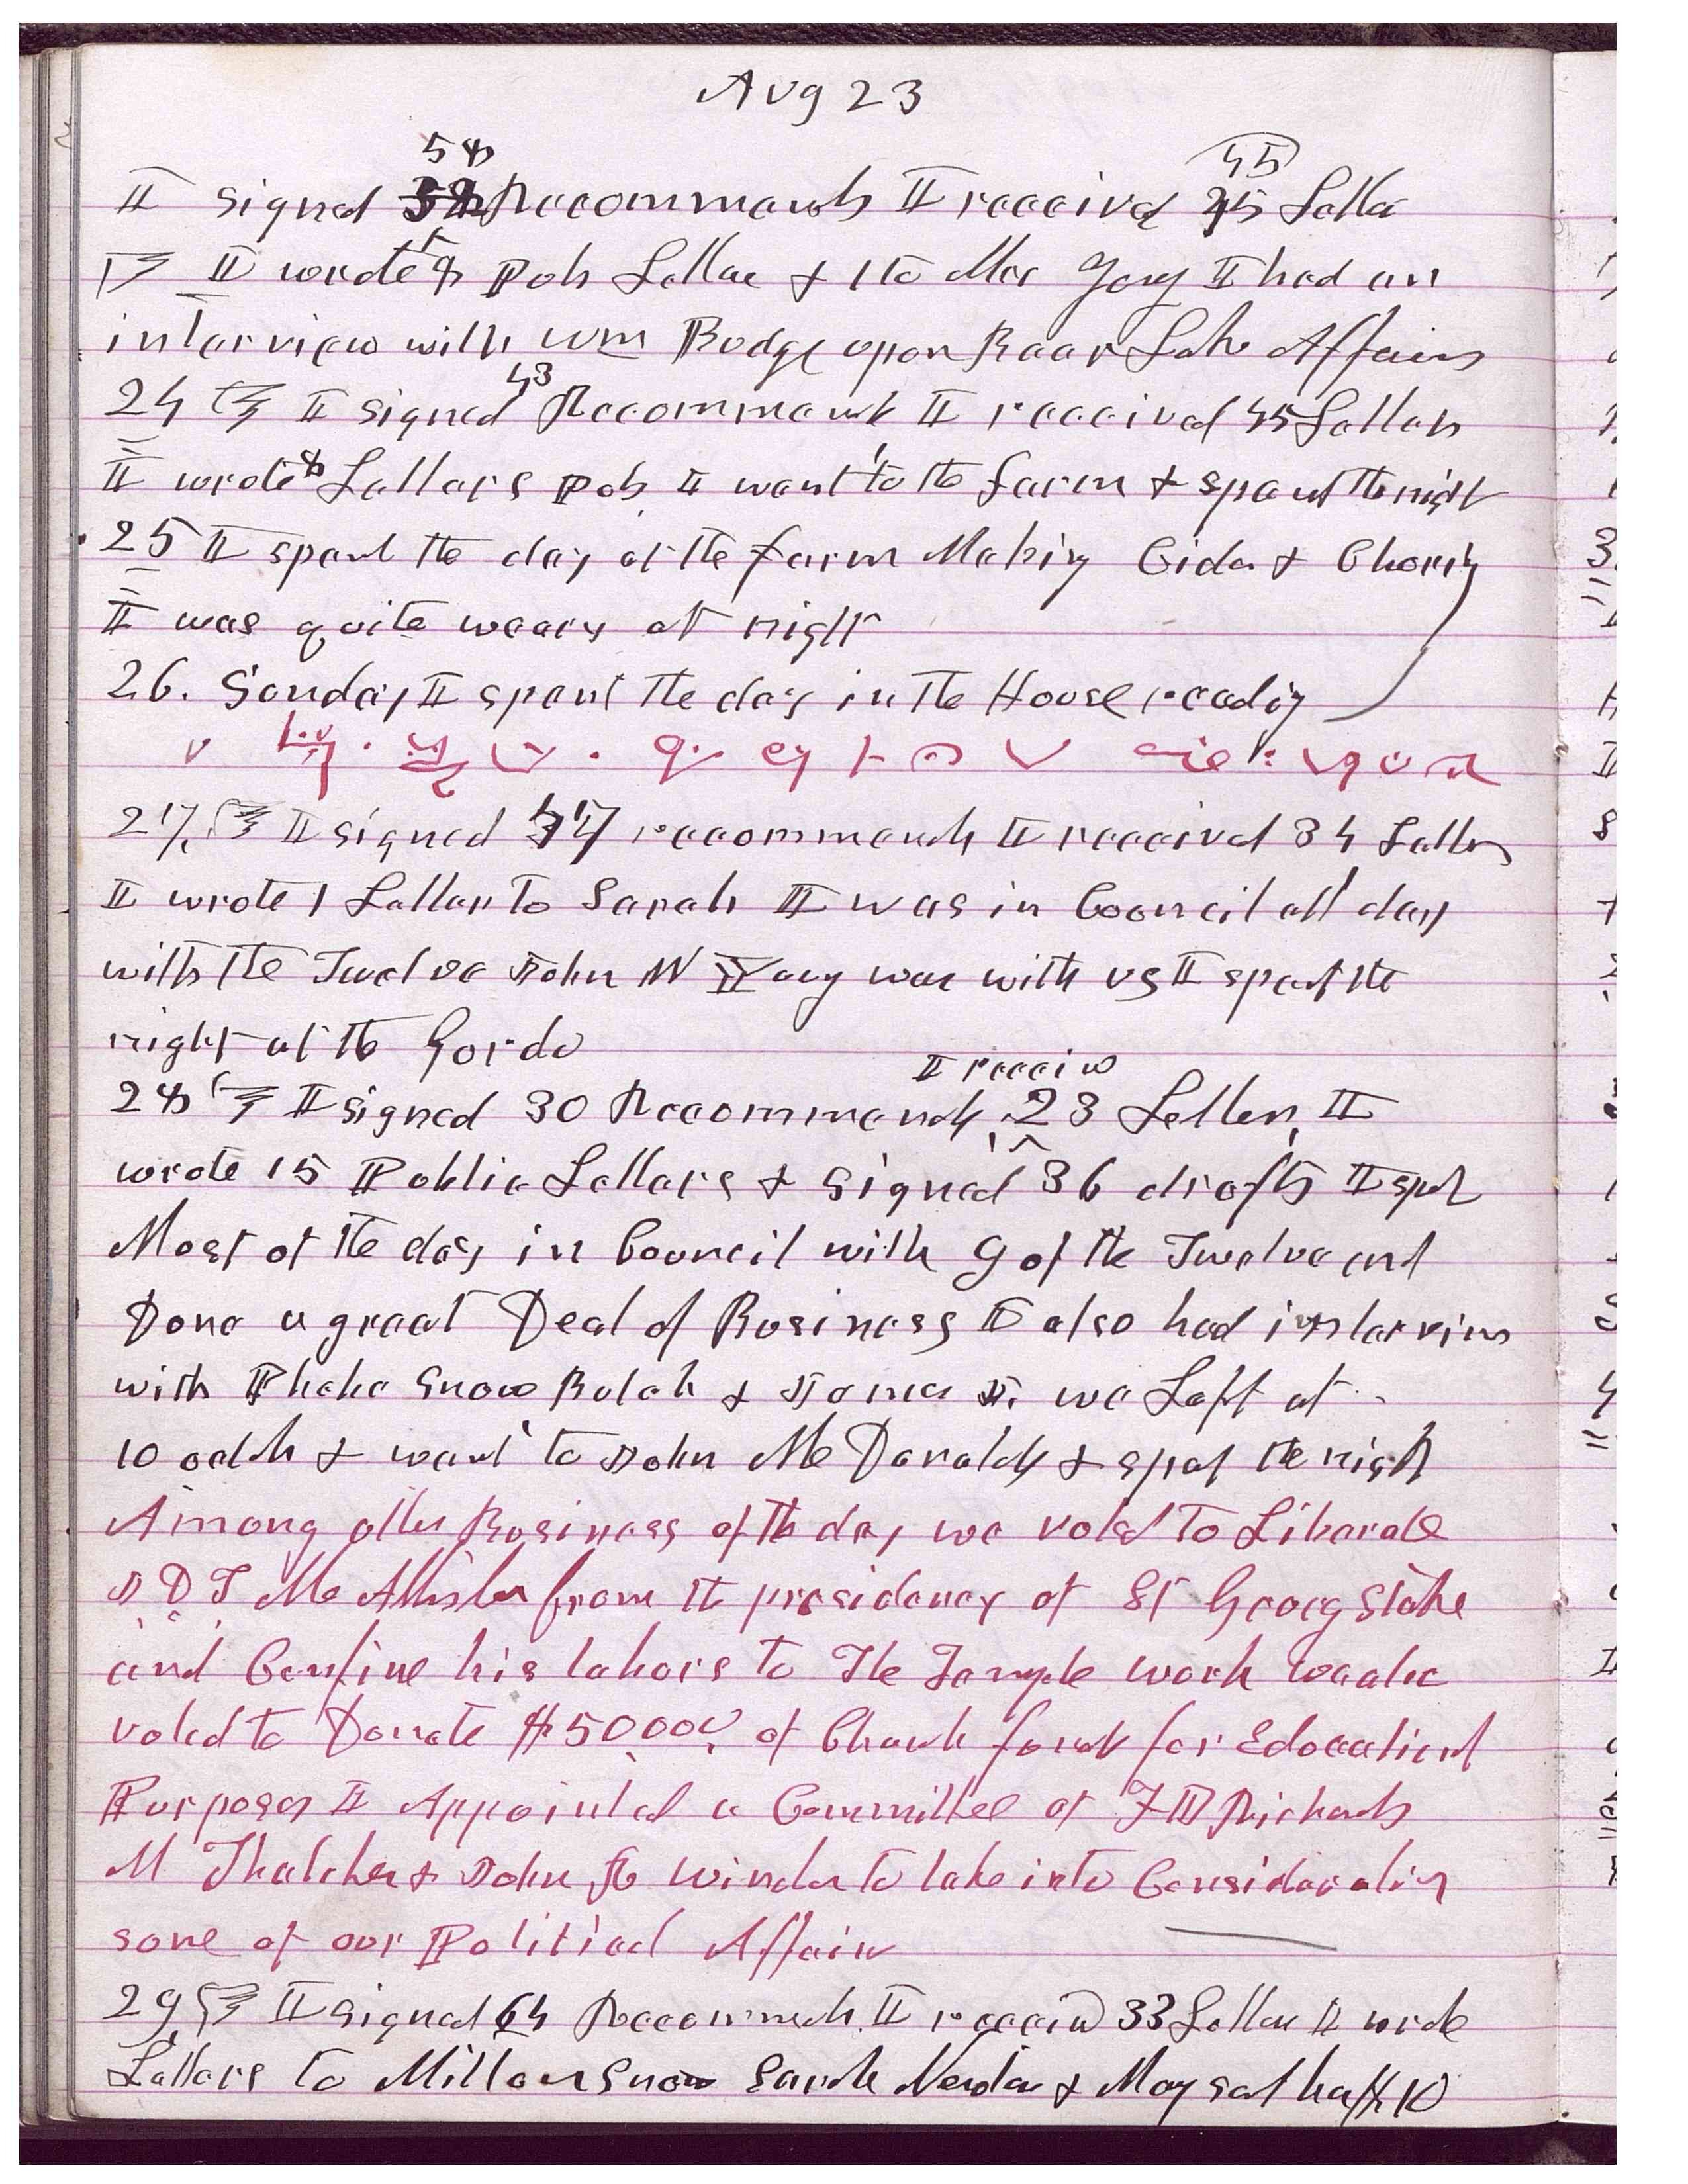 Aug 23
58
I signed 38 Recommends I received 45 25 Letter
I wrote 8 Pub Letter & 1 to Mrs I had an
interview with Wm Budge upon Bear Lake Affairs
24 I signed 43 Recommend I received 45 Letters
I wrote 8 Letters Pub I went to the farm & spent the night
25 I spent the day at the farm Making Cider &
I was quite weary at night
26. Sunday I spent the day in the House reading
27. I signed 47 recommends I received 34 Letters
I wrote 1 Letter to Sarah I was in Council all day
with the Twelve John W Young was with us I spent the
night at the Gardo
I receivd
28 I signed 30 Recommends 23 Letters I
wrote 15 Public Letters & signed 36 drafts I spent
Most of the day in Council with 9 of the Twelve and
Done a great Deal of Business I also had interview
with Phebe Snow Bulah & James J. we Left at
10 oclok & went to John McDonalds & spent the night
Among other Business of the day we voted to Liberate
J D T McAllister from the presidency of St George Stake
and Confine his labors to The Temple work we also
voted to Donate $5000 of Church funds for Educational
Purposes I Appointed a Committee of F D Richards
M Thatcher & John R Winder to take into Consideration
some of our Political Affairs
29 I signed 64 Recommends I received 33 Letters I wrote
Letters to Milton Snow Sarah Newton & May sat half 10